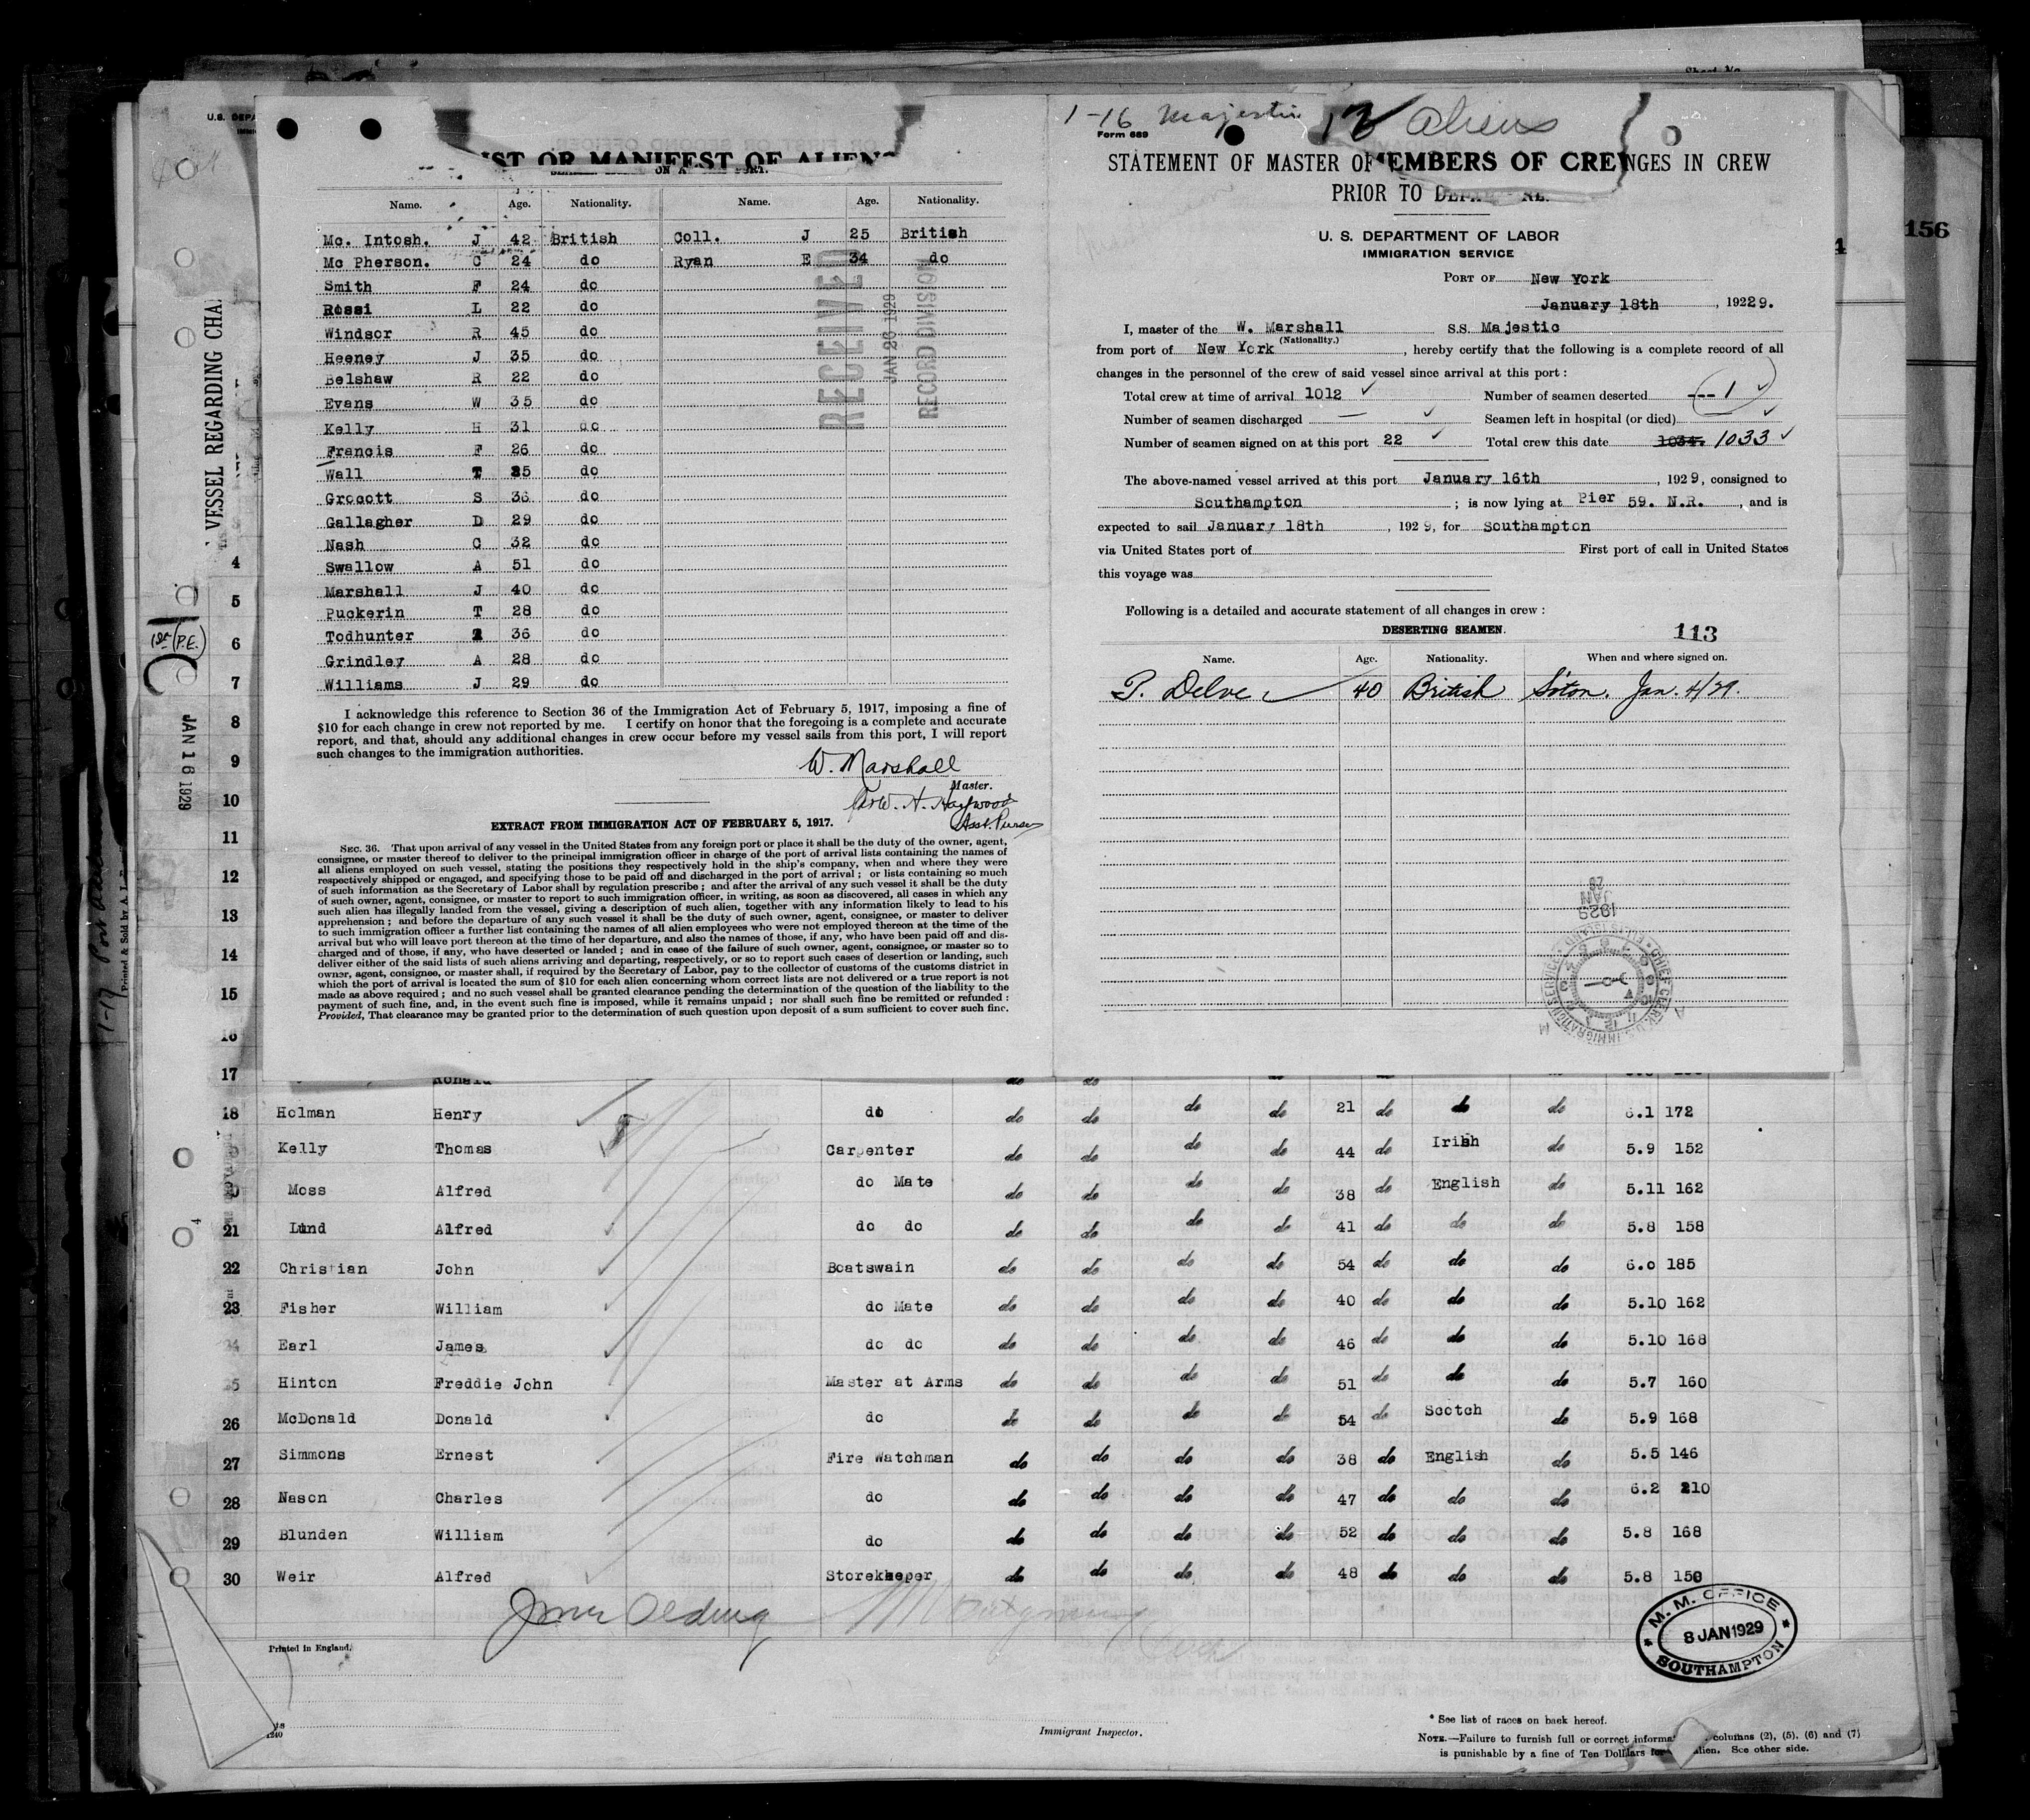 U.S. DEPA
LIST OR MANIFEST OF ALIENS
Name. Age. Nationality. Name. Age. Nationality.
Mc. Intosh. J 42 British Coll. J 25 British
Mc Pherson. C 24 do Ryan E 34 do
Smith F 24 do
Rossi L 22 do
Windsor R 45 do
Heeney J 35 do
Belshaw R 22 do
Evans W 35 do
Kelly H 31 do
Francis F 26 do
Wall T 35 do
Grocott S 36 do
Gallagher D 29 do
Nash C 32 do
Swallow A 51 do
Marshall J 40 do
Puckerin T 28 do
Todhunter 36 do
Grindley A 28 do
Williams J 29 do
RECEIVED
JAN 26 1929
RECORD DIVISION
I acknowledge this reference to Section 36 of the Immigration Act of February 5, 1917, imposing a fine of
$10 for each change in crew not reported by me. I certify on honor that the foregoing is a complete and accurate
report, and that, should any additional changes in crew occur before my vessel sails from this port, I will report
such changes to the immigration authorities.
W. Marshall
Master.
Per W. H. Haywood
Asst. Purser
EXTRACT FROM IMMIGRATION ACT OF FEBRUARY 5, 1917.
SEC. 36. That upon arrival of any vessel in the United States from any foreign port or place it shall be the duty of the owner, agent,
consignee, or master thereof to deliver to the principal immigration officer in charge of the port of arrival lists containing the names of
all aliens employed on such vessel, stating the positions they respectively hold in the ship's company, when and where they were
respectively shipped or engaged, and specifying those to be paid off and discharged in the port of arrival; or lists containing so much
of such information as the Secretary of Labor shall by regulation prescribe; and after the arrival of any such vessel it shall be the duty
of such owner, agent, consignee, or master to report to such immigration officer, in writing, as soon as discovered, all cases in which any
such alien has illegally landed from the vessel, giving a description of such alien, together with any information likely to lead to his
apprehension; and before the departure of any such vessel it shall be the duty of such owner, agent, consignee, or master to deliver
to such immigration officer a further list containing the names of all alien employees who were not employed thereon at the time of the
arrival but who will leave port thereon at the time of her departure, and also the names of those, if any, who have been paid off and dis-
charged and of those, if any, who have deserted or landed; and in case of the failure of such owner, agent, consignee, or master so to
deliver either of the said lists of such aliens arriving and departing, respectively, or so to report such cases of desertion or landing, such
owner, agent, consignee, or master shall, if required by the Secretary of Labor, pay to the collector of customs of the customs district in
which the port of arrival is located the sum of $10 for each alien concerning whom correct lists are not delivered or a true report is not
made as above required; and no such vessel shall be granted clearance pending the determination of the question of the liability to the
payment of such fine, and, in the event such fine is imposed, while it remains unpaid; nor shall such fine be remitted or refunded:
Provided, That clearance may be granted prior to the determination of such question upon deposit of a sum sufficient to cover such fine.
1-16 Majestic 12 Aliens
Form 689
STATEMENT OF MASTER OF MEMBERS OF CRE NGES IN CREW
PRIOR TO DEPA RE.
U. S. DEPARTMENT OF LABOR
IMMIGRATION SERVICE
PORT OF New York
January 18th, 19229.
I, master of the W. Marshall S.S. Majestic
(Nationality.)
from port of New York, hereby certify that the following is a complete record of all
changes in the personnel of the crew of said vessel since arrival at this port:
Total crew at time of arrival 1012 Number of seamen deserted --- 1
Number of seamen discharged — Seamen left in hospital (or died)
Number of seamen signed on at this port 22 Total crew this date 1034. 1033
The above-named vessel arrived at this port January 16th, 1929, consigned to
Southampton; is now lying at Pier 59. N.R., and is
expected to sail January 18th, 1929, for Southampton
via United States port of First port of call in United States
this voyage was
Following is a detailed and accurate statement of all changes in crew:
DESERTING SEAMEN. 113
Name. Age. Nationality. When and where signed on.
P. Delve 40 British S'ton. Jan. 4/29.
1929
JAN
CHIEF CLERK, U.S. IMMIGRATION SERVICE
156
VESSEL REGARDING CHA
1st (P.E.)
JAN 16 1929
Printed & Sold by A.
1-17
4
5
6
7
8
9
10
11
12
13
14
15
16
17 Ronald do do
18 Holman Henry do do do do do 21 do do do 6.1 172
Kelly Thomas Carpenter do do do do 44 do Irish do 5.9 152
Moss Alfred do Mate do do do do 38 do English do 5.11 162
21 Lund Alfred do do do do do do 41 do do do 5.8 158
22 Christian John Boatswain do do do do 54 do do do 6.0 185
23 Fisher William do Mate do do do do 40 do do do 5.10 162
24 Earl James do do do do do do 46 do do do 5.10 168
25 Hinton Freddie John Master at Arms do do do do 51 do do do 5.7 160
26 McDonald Donald do do do do do 54 do Scotch do 5.9 168
27 Simmons Ernest Fire Watchman do do do do 38 do English do 5.5 146
28 Nason Charles do do do do do 47 do do do 6.2 210
29 Blunden William do do do do do 52 do do do 5.8 168
30 Weir Alfred Storekeeper do do do do 48 do do do 5.8 150
Printed in England.
M. M. OFFICE
8 JAN 1929
SOUTHAMPTON
1240
Immigrant Inspector.
* See list of races on back hereof.
NOTE.—Failure to furnish full or correct informa columns (2), (5), (6) and (7)
is punishable by a fine of Ten Dollars for alien. See other side.